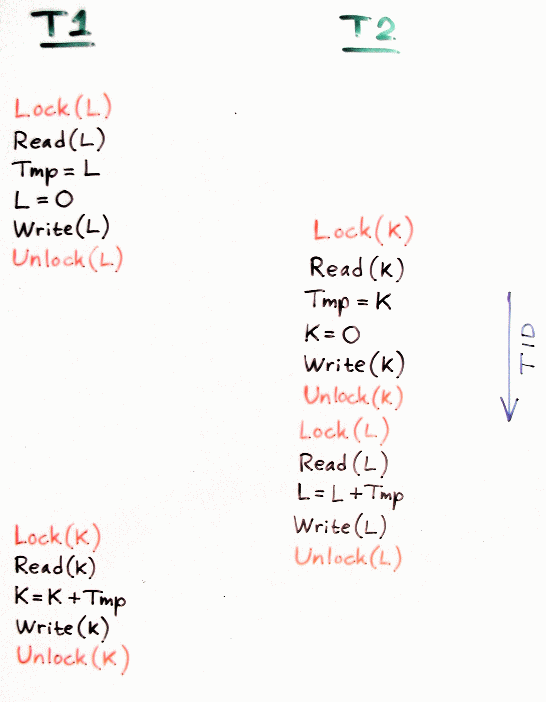 T1
Lock(L)
Read(L)
Tmp = L
L = 0
Write(L)
Unlock(L)
Lock(K)
Read(k)
K = K + Tmp
Write(k)
Unlock(K)
T2
Lock(K)
Read(K)
Tmp = K
K = 0
Write(K)
Unlock(K)
Lock(L)
Read(L)
L = L + Tmp
Write(L)
Unlock(L)
TID